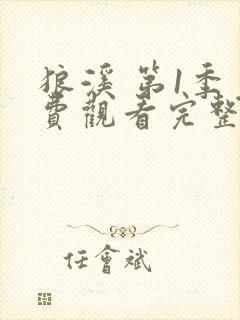 狼溪 第1季
費觀看完整
任會斌